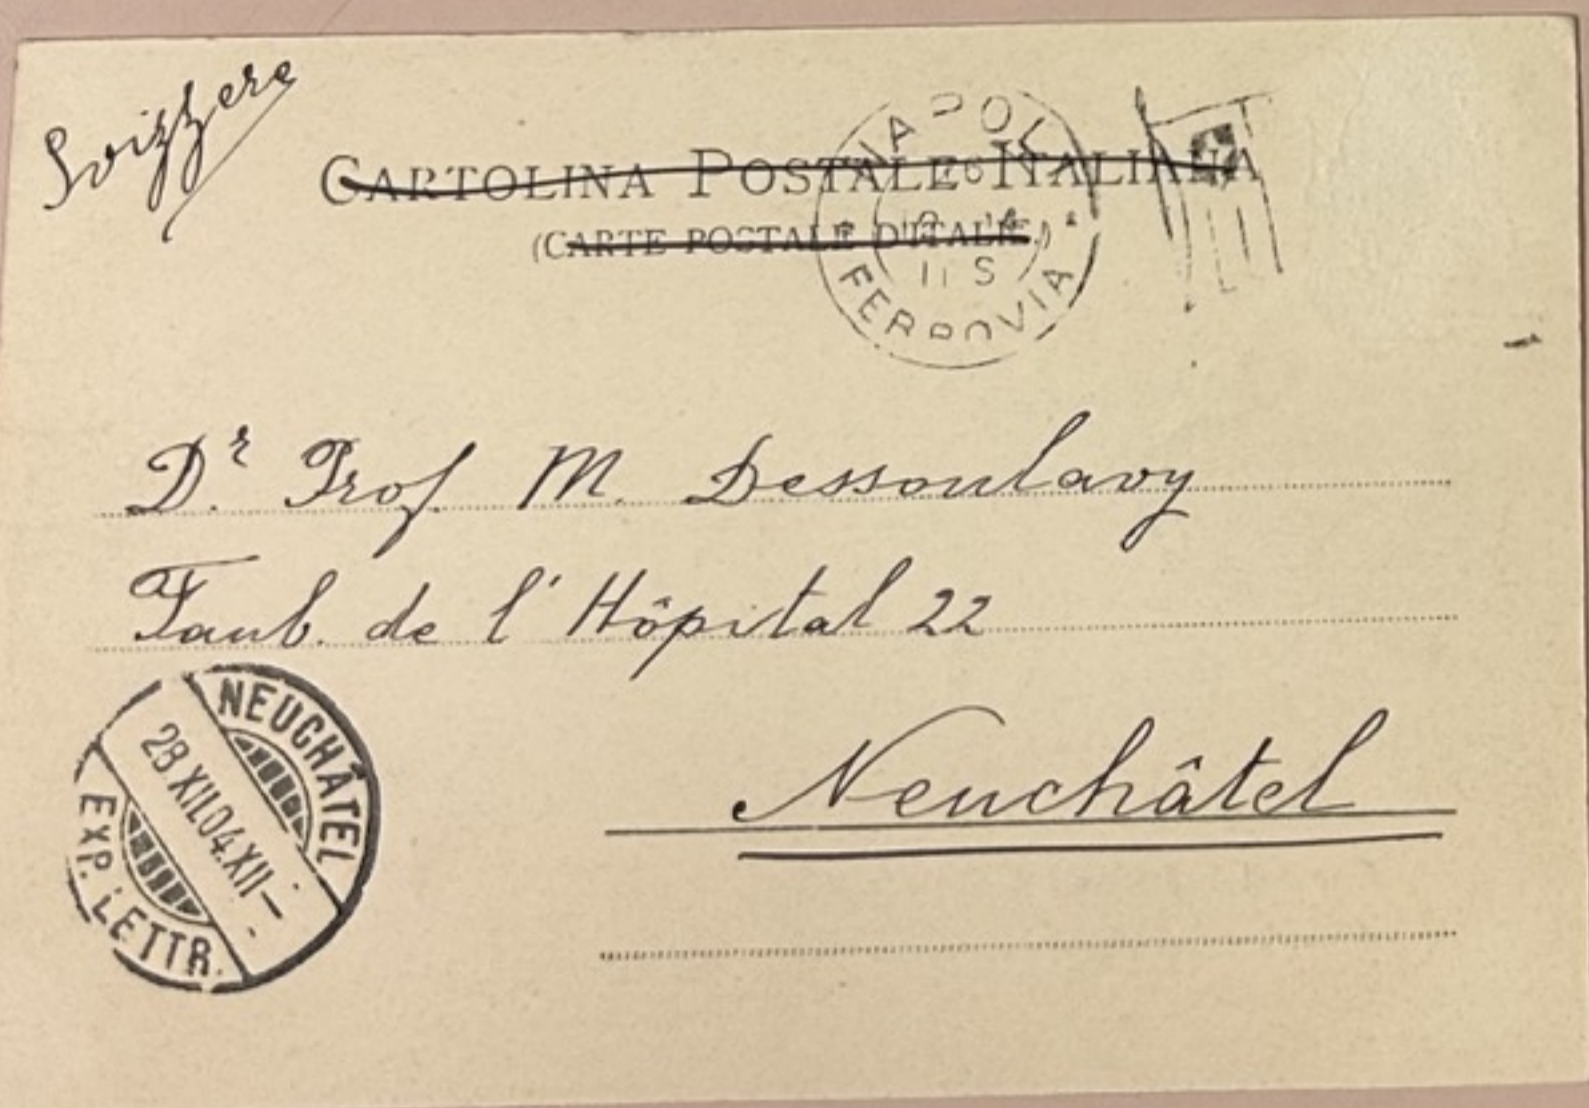 Svizzera
CARTOLINA POSTALE ITALIANA
(CARTE POSTALE D'ITALIE)
NAPOLI
11 S
FERROVIA
Dr. Prof. M. Dessoulavy
Faub. de l'Hôpital 22
Neuchâtel
NEUCHÂTEL
28.XII.04.XII—
EXP. LETTR.